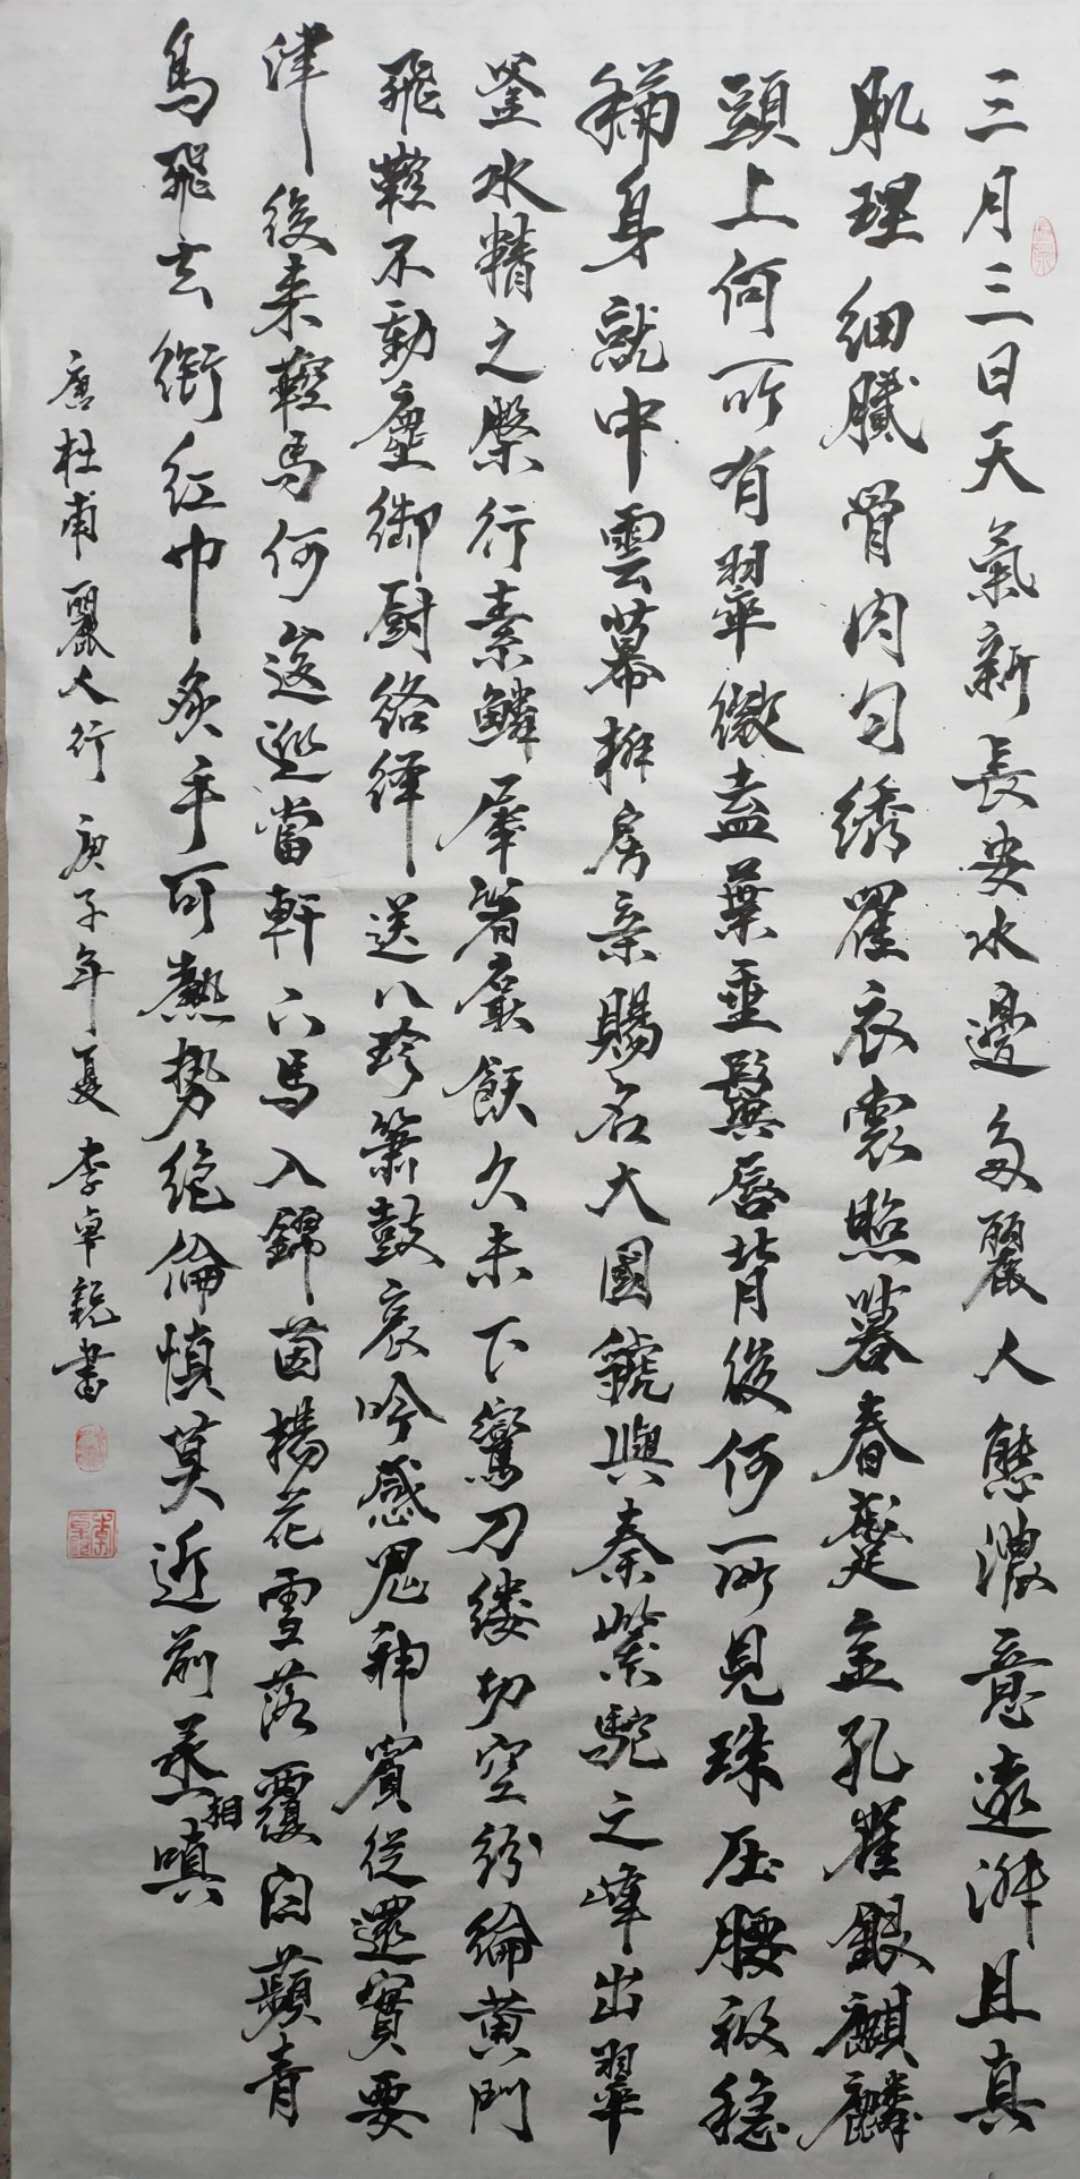 三月三日天氣新長安水邊多麗人態濃意遠淑且真
肌理細膩骨肉勻绣羅衣裳照暮春蹙金孔雀銀麒麟
頭上何所有翠微盍葉垂鬢唇背後何所見珠压腰衱穩
稱身就中雲幕椒房亲賜名大國虢與秦紫駝之峰出翠
釜水精之槃行素鱗犀箸厭飫久未下鸞刀缕切空紛綸黄門
飛鞚不動塵御厨络繹送八珍箫鼓哀吟感鬼神賓從遝實要
津後来鞍馬何逡巡當軒下馬入錦茵楊花雪落覆白蘋青
鳥飛去銜紅巾炙手可熱势絶倫慎莫近前丞相嗔
唐杜甫麗人行庚子年夏李卓親書